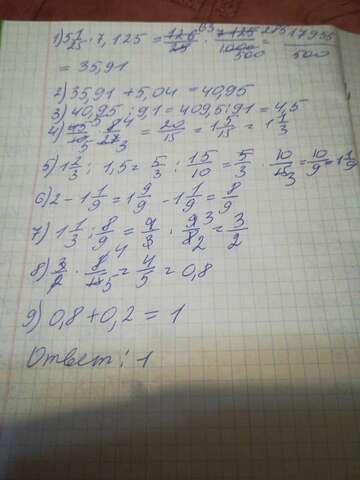 1) 5 1/25 · 7,125 = 126/25 · 7125/1000 = 17955/500
= 35,91
2) 35,91 + 5,04 = 40,95
3) 40,95 : 9,1 = 409,5 : 91 = 4,5
4) 45/10 · 8/27 = 20/15 = 1 5/15 = 1 1/3
5) 1 2/3 : 1,5 = 5/3 : 15/10 = 5/3 · 10/15 = 10/9 = 1 1/9
6) 2 - 1 1/9 = 1 9/9 - 1 1/9 = 8/9
7) 1 1/3 : 8/9 = 4/3 · 9/8 = 3/2
8) 3/2 · 8/15 = 4/5 = 0,8
9) 0,8 + 0,2 = 1
Ответ: 1